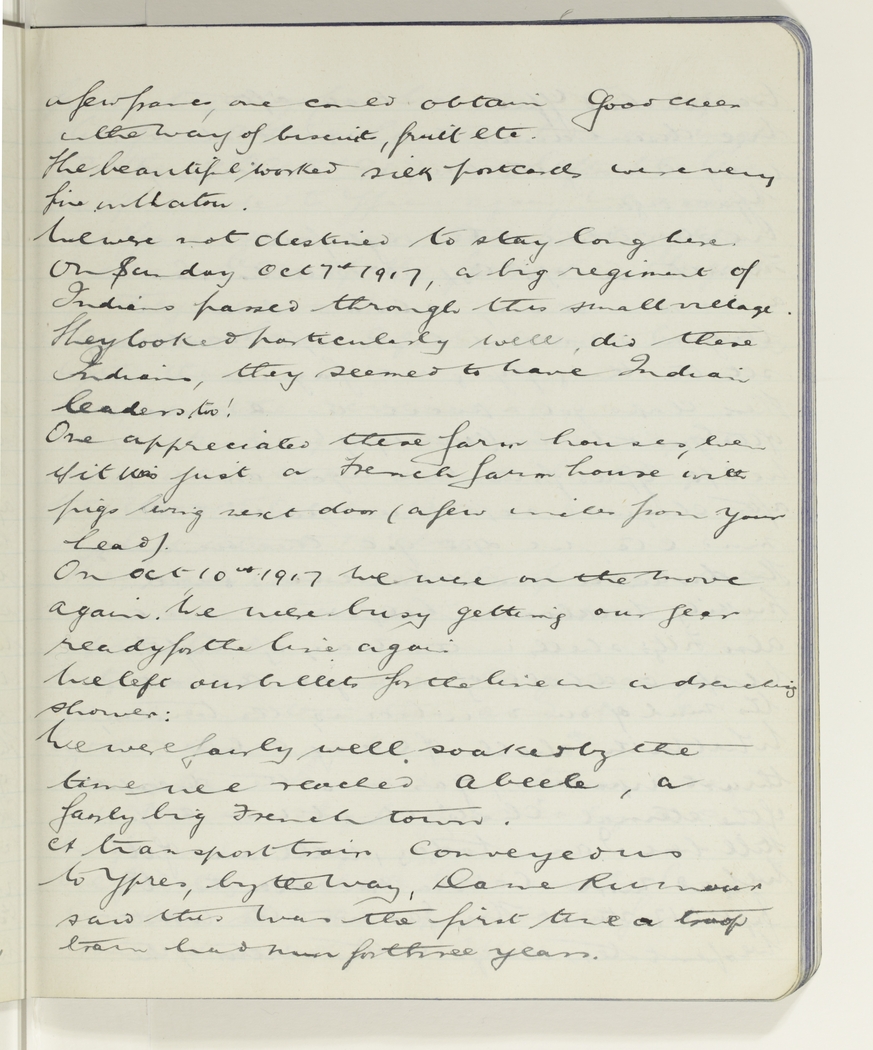 a few francs, one could obtain Good cheer
in the way of biscuits, fruit etc.
The beautiful worked silk postcards were very
fine in that
We were not destined to stay long here.
On Sunday Oct 7th 1917, a big regiment of
Indians passed through this small village.
They looked particularly well, did these
Indians, they seemed to have Indian
leaders, too!
One appreciated these farm houses, even
if it was just a French farm house with
pigs living next door (a few inches from your
head).
On Oct, 10th 1917 we were on the move
again. We were busy getting our gear
ready for the line again.
We left our billets for the line in a drenching
shower:
We were fairly well soaked by the
time we reached Abeele, a
fairly big French town.
A transport train conveyed us
to Ypres, by the way, Dame Rumour
said this was the first time a troop
train had run for three years.